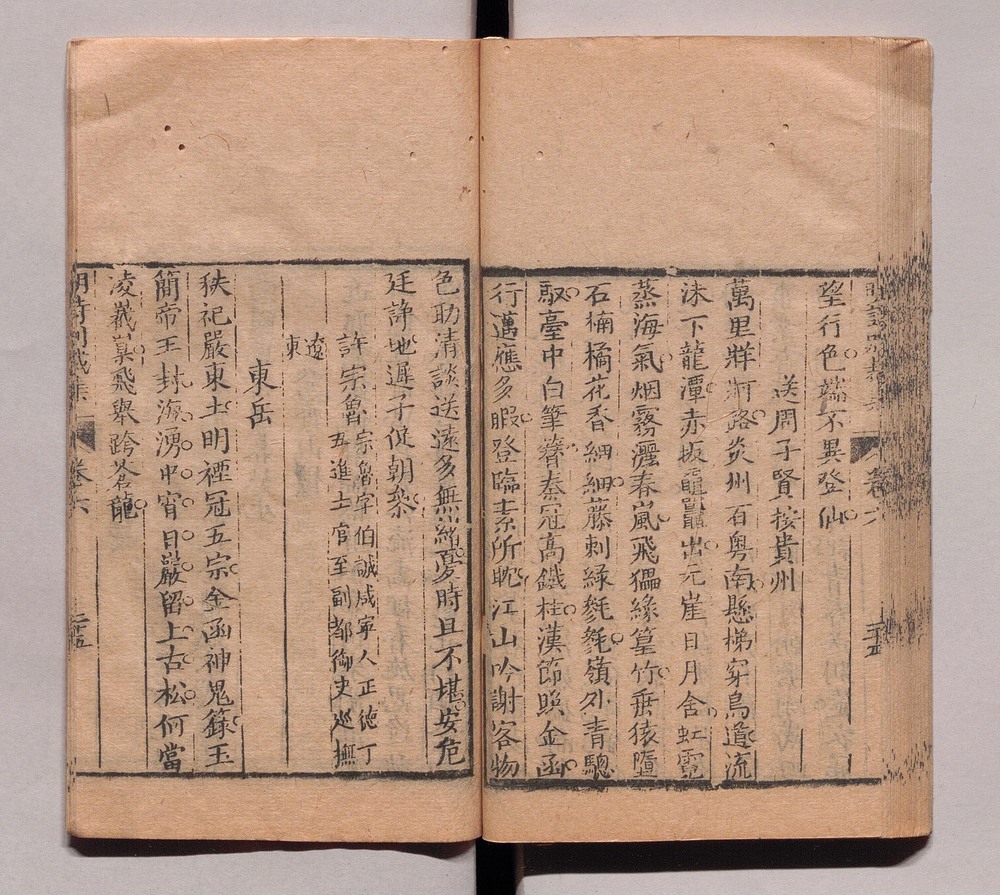 望行色端不異登仙
送周子賢按貴州
萬里牂牁路炎州石粵南懸梯穿鳥道流
沫下龍潭赤坂黿鼉出元崖日月舍虹霓
蒸海氣烟霧灑春嵐飛猫緣篁竹垂猿墮
石楠橘花香細細藤刺綠毵毵嶺外青驄
馭臺中白筆簪秦冠高鐵柱漢節照金函
行邁應多暇登臨素所眈江山吟謝客物
色助清談送遠多無緒憂時且不堪安危
廷諍地遲子促朝叅
許宗魯 宗魯字伯誠咸寧人正德丁
丑進士官至副都御史巡撫
遼
東
東岳
秩祀嚴東土明禋冠五宗金函神鬼籙玉
簡帝王封海湧中宵日巖留上古松何當
凌巀嶪飛舉跨蒼龍
卷六